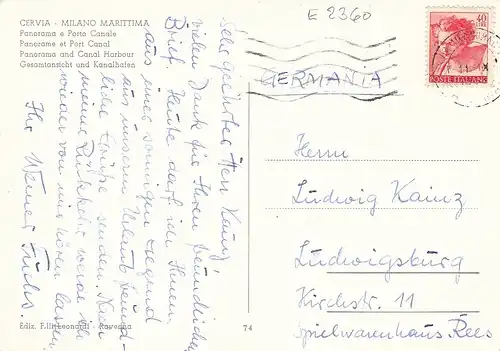 CERVIA - MILANO MARITTIMA
Panorama e Porto Canale
Panorame et Port Canal
Panorama and Canal Harbour
Gesamtansicht und Kanalhafen
E 2360
40
POSTE ITALIANE
GERMANIA
Sehr geehrter Herr Kainz!
vielen Dank für Ihren freundlichen
Brief. Heute darf ich Ihnen
aus einer sonnigen Gegend
aus unserem Urlaub freund-
liche Grüße senden. Nach
meiner Rückkehr werde ich
wieder von mir hören lassen.
Ihr Werner Fuchs.
Herrn
Ludwig Kainz
Ludwigsburg
Kirchstr. 11
Spielwarenhaus Rees
Ediz. F.lli Leonardi - Ravenna
74